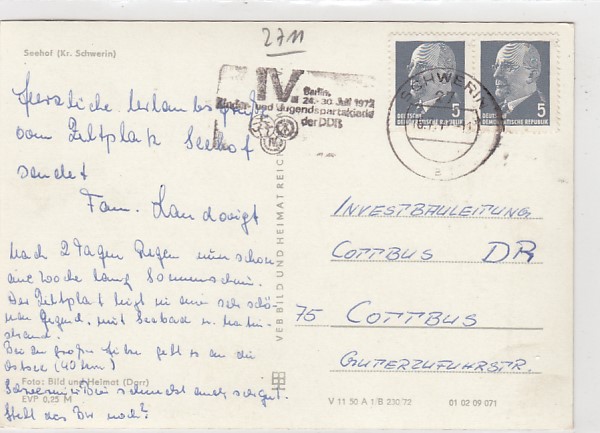 2711
Seehof (Kr. Schwerin)
IV
Berlin,
24.-30. Juli 1972
Kinder- und Jugendspartakiade
der DDR
SCHWERIN
27
a
5
DEUTSCHE DEMOKRATISCHE REPUBLIK
5
DEUTSCHE DEMOKRATISCHE REPUBLIK
Herzliche Urlaubsgrüße
vom Zeltplatz Seehof
sendet
Fam.
Nach 2 Tagen Regen nun schon
eine Woche lang Sonnenschein.
Der Zeltplatz liegt in einer sehr schö-
nen Gegend, mit Seebad u.
strand.
Bei der großen Hitze geht es an die
Ostsee (40 km)
Foto: Bild und Heimat (Darr)
Schweriner Bier schmeckt auch sehr gut.
EVP 0,25 M
Steht das noch?
VEB BILD UND HEIMAT REICHENBACH
INVESTBAULEITUNG
COTTBUS DR
75 COTTBUS
GÜTERZUFUHRSTR.
V 11 50 A 1/B 230/72 01 02 09 071